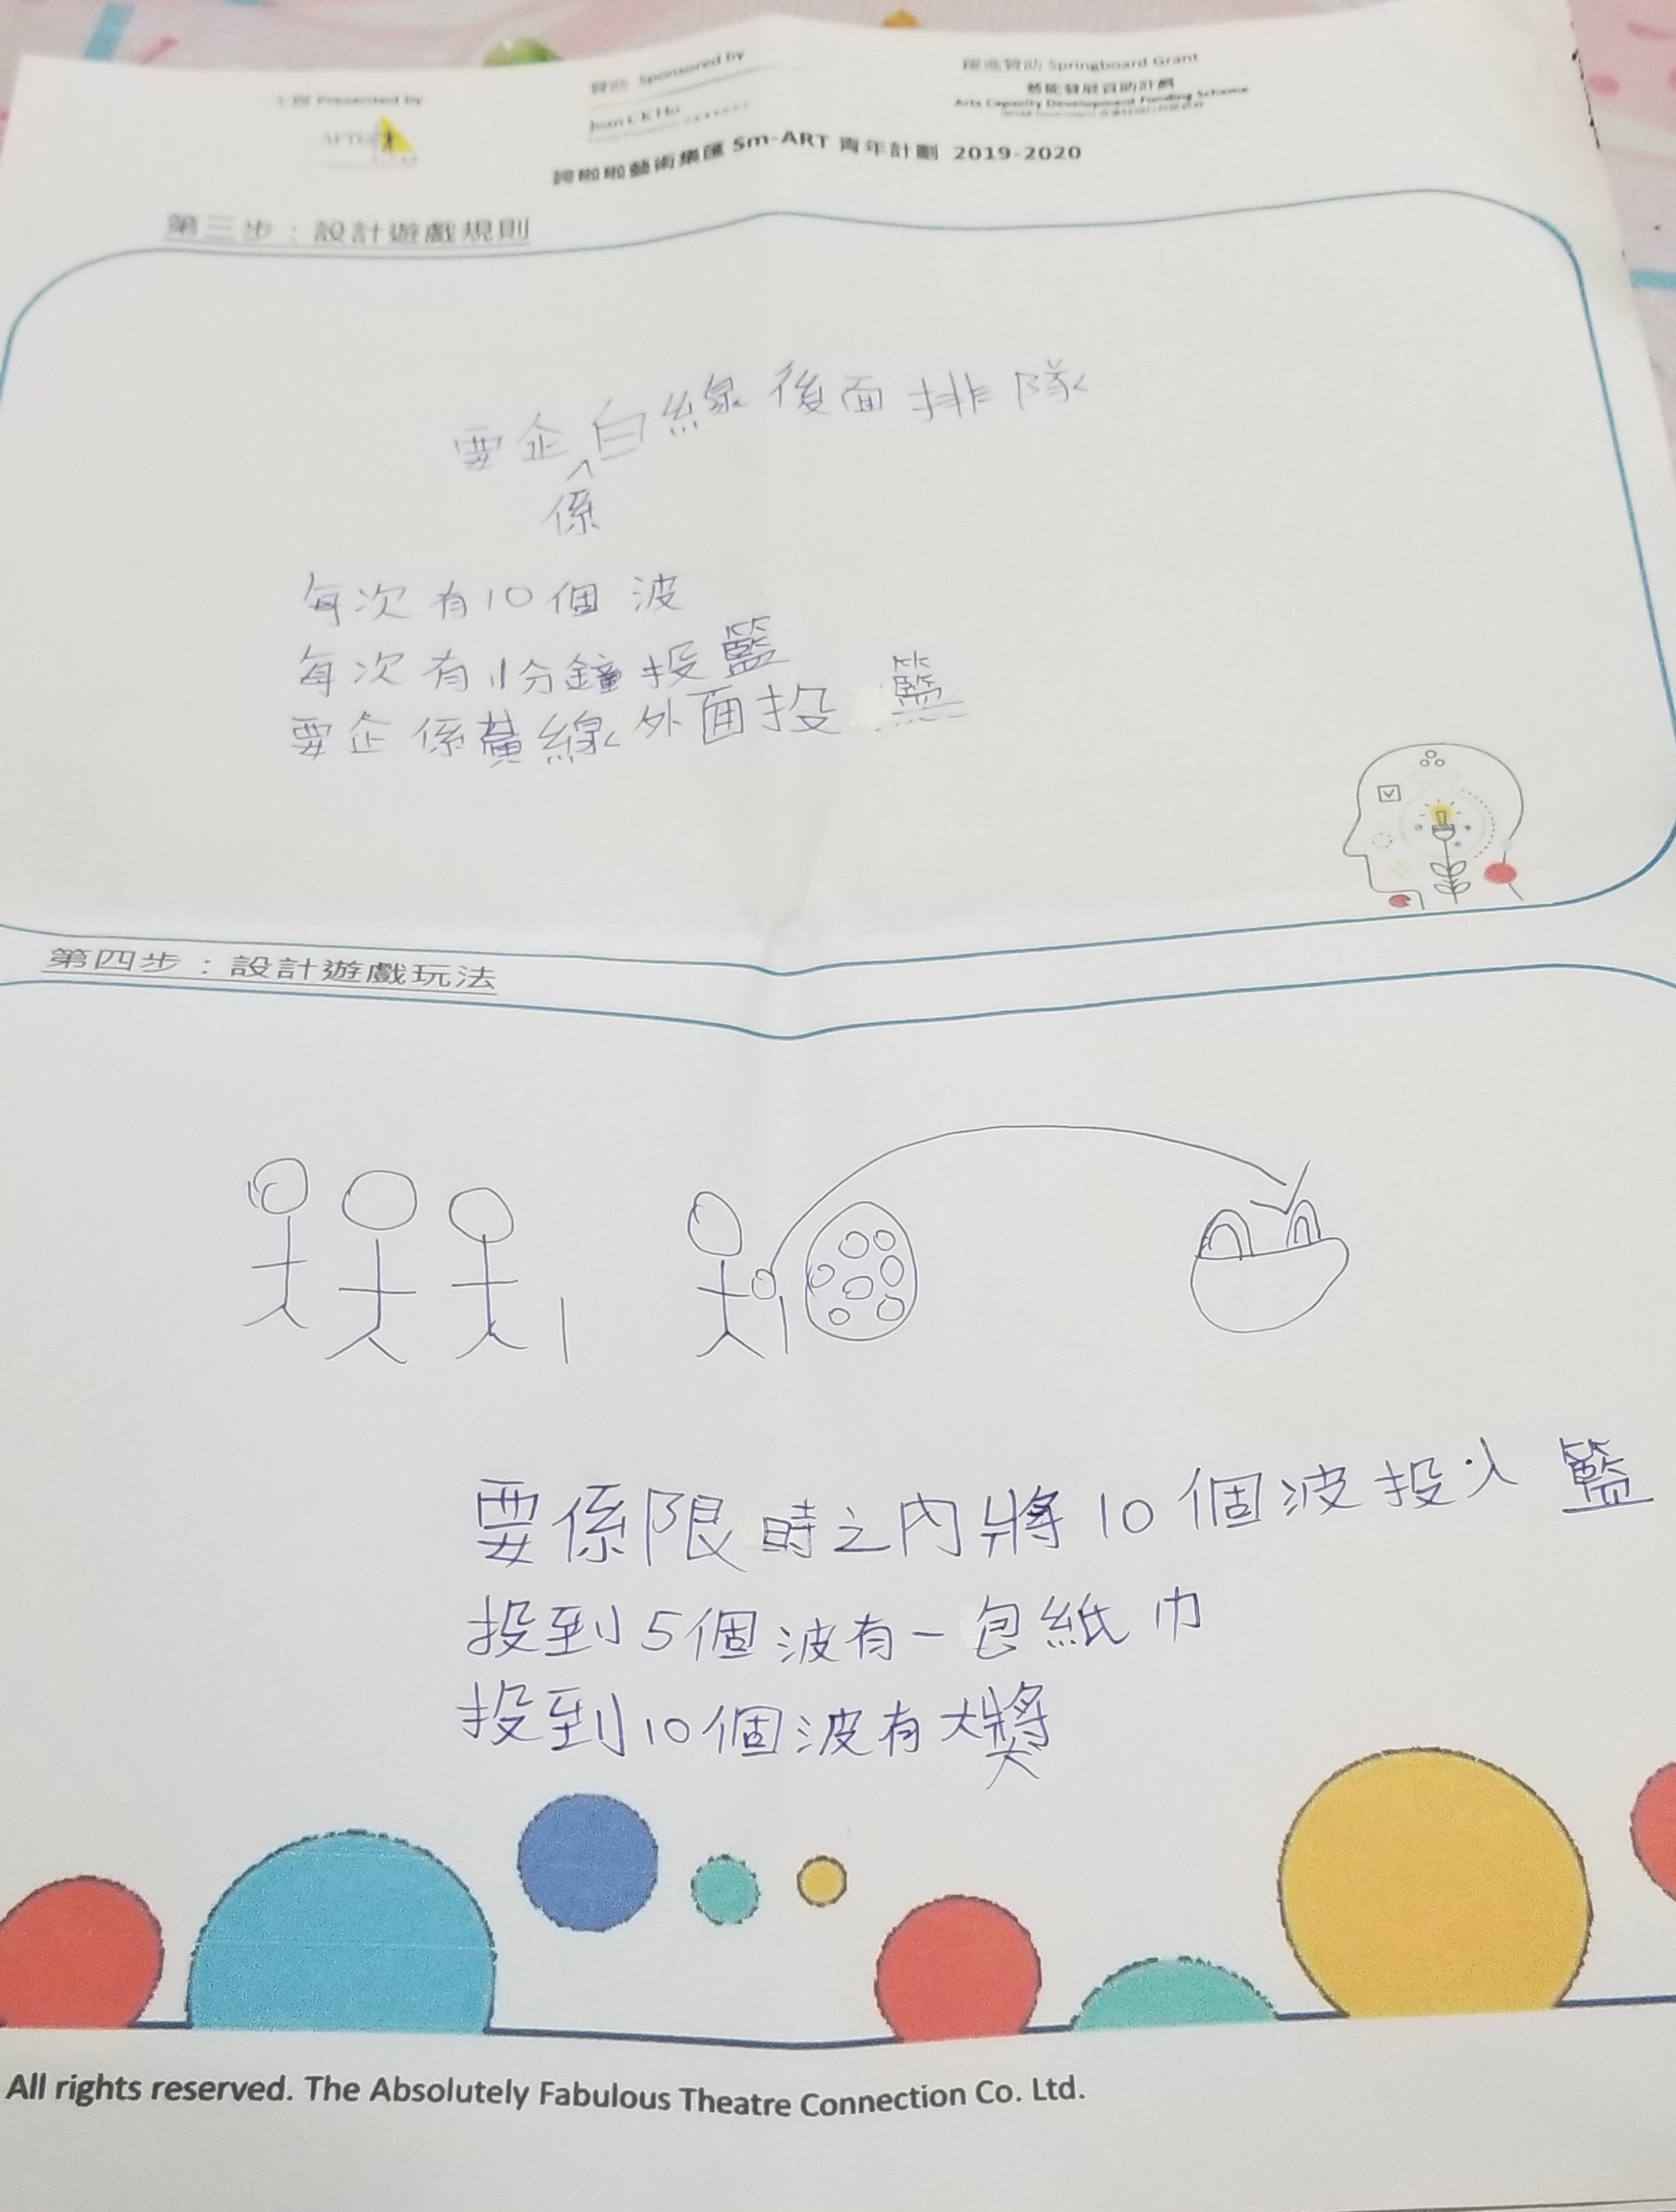 主辦 Presented by
AFTEC
贊助 Sponsored by
Jean CK Ho
躍進資助 Springboard Grant
藝能發展資助計劃
Arts Capacity Development Funding Scheme
誇啦啦藝術集匯 Sm-ART 青年計劃 2019-2020
第三步：設計遊戲規則
要企係白線後面排隊
每次有10個波
每次有1分鐘投籃
要企係黃線外面投籃
第四步：設計遊戲玩法
要係限時之內將10個波投入籃
投到5個波有一包紙巾
投到10個波有大獎
All rights reserved. The Absolutely Fabulous Theatre Connection Co. Ltd.